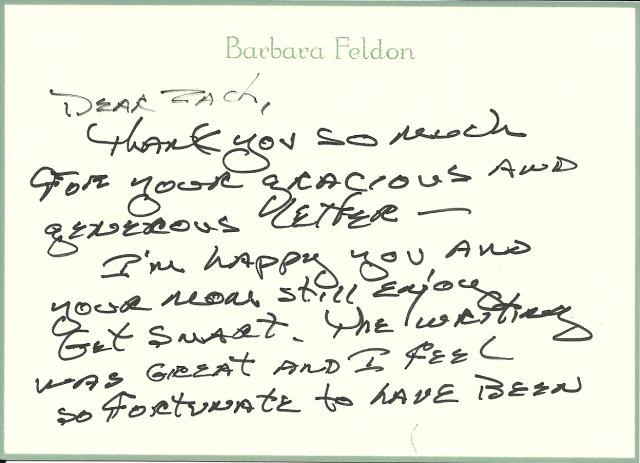 Barbara Feldon
Dear Zach,
Thank you so much
for your gracious and
generous letter —
I'm happy you and
your mom still enjoy
Get Smart. The writing
was great and I feel
so fortunate to have been